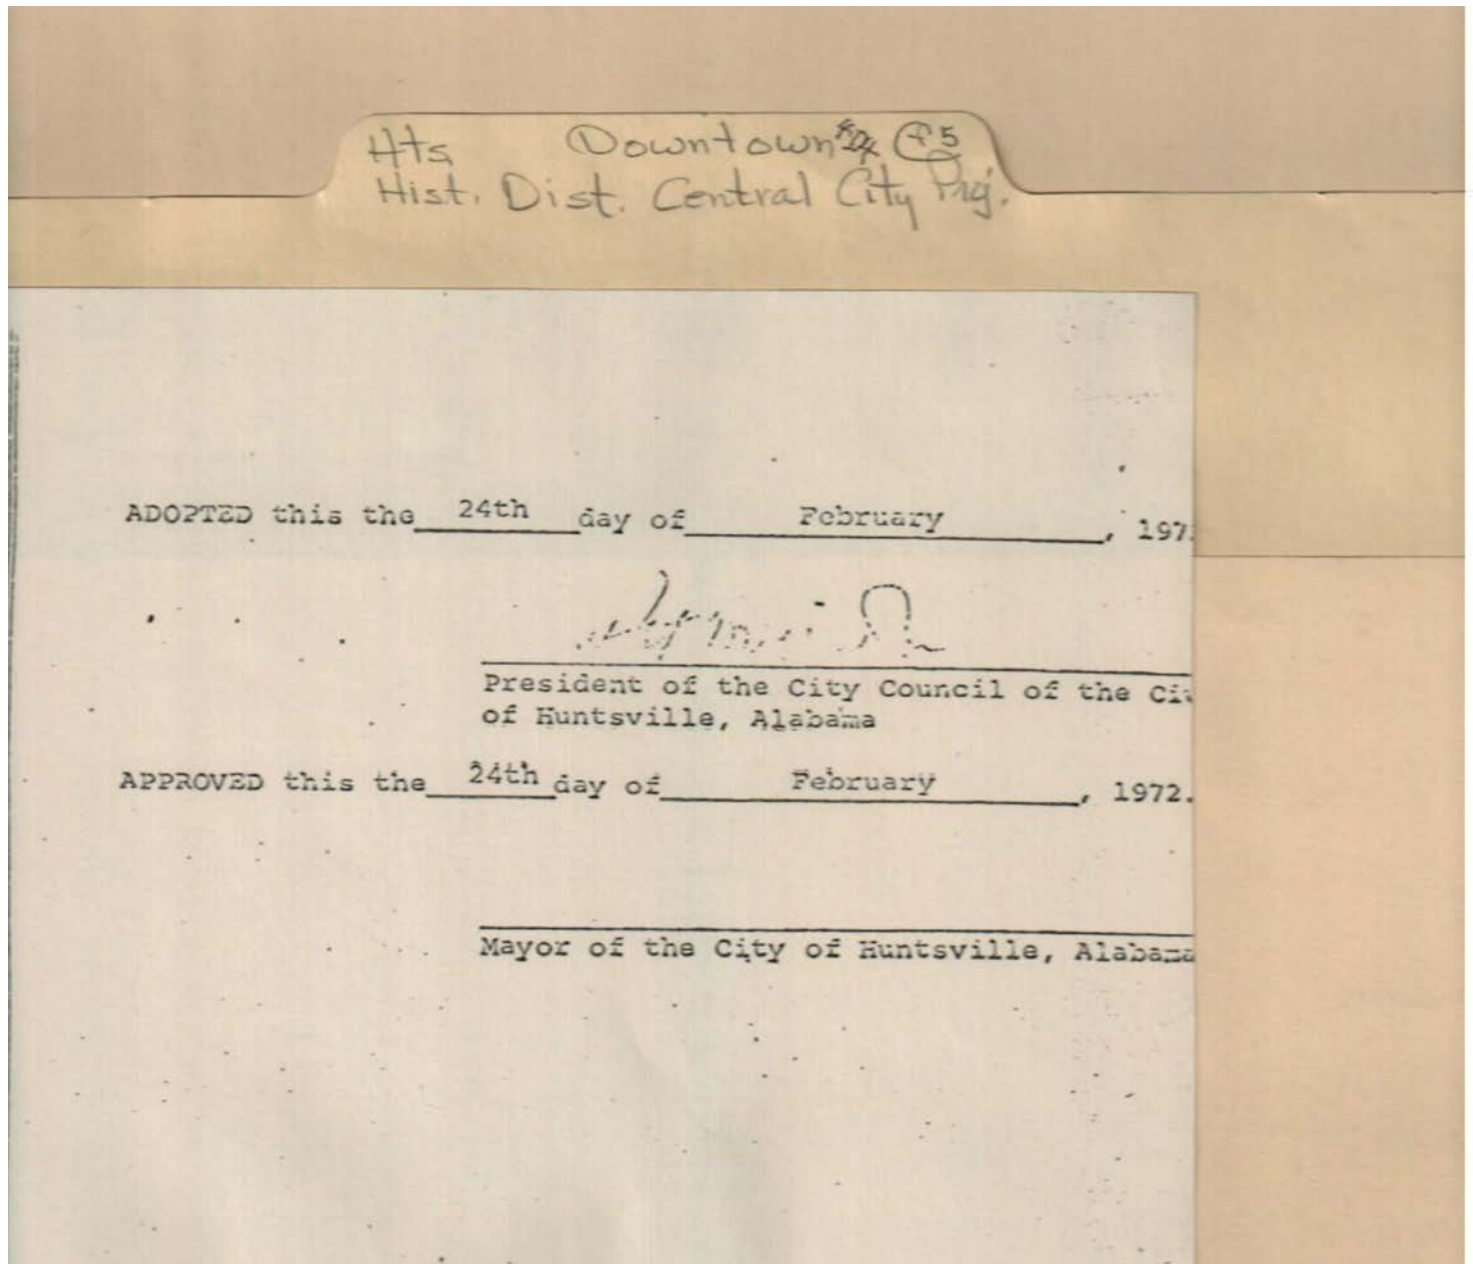 Hts Downtown
Hist. Dist. Central City Prj.
ADOPTED this the 24th day of February, 197
President of the City Council of the Ci
of Huntsville, Alabama
APPROVED this the 24th day of February, 1972.
Mayor of the City of Huntsville, Alabama